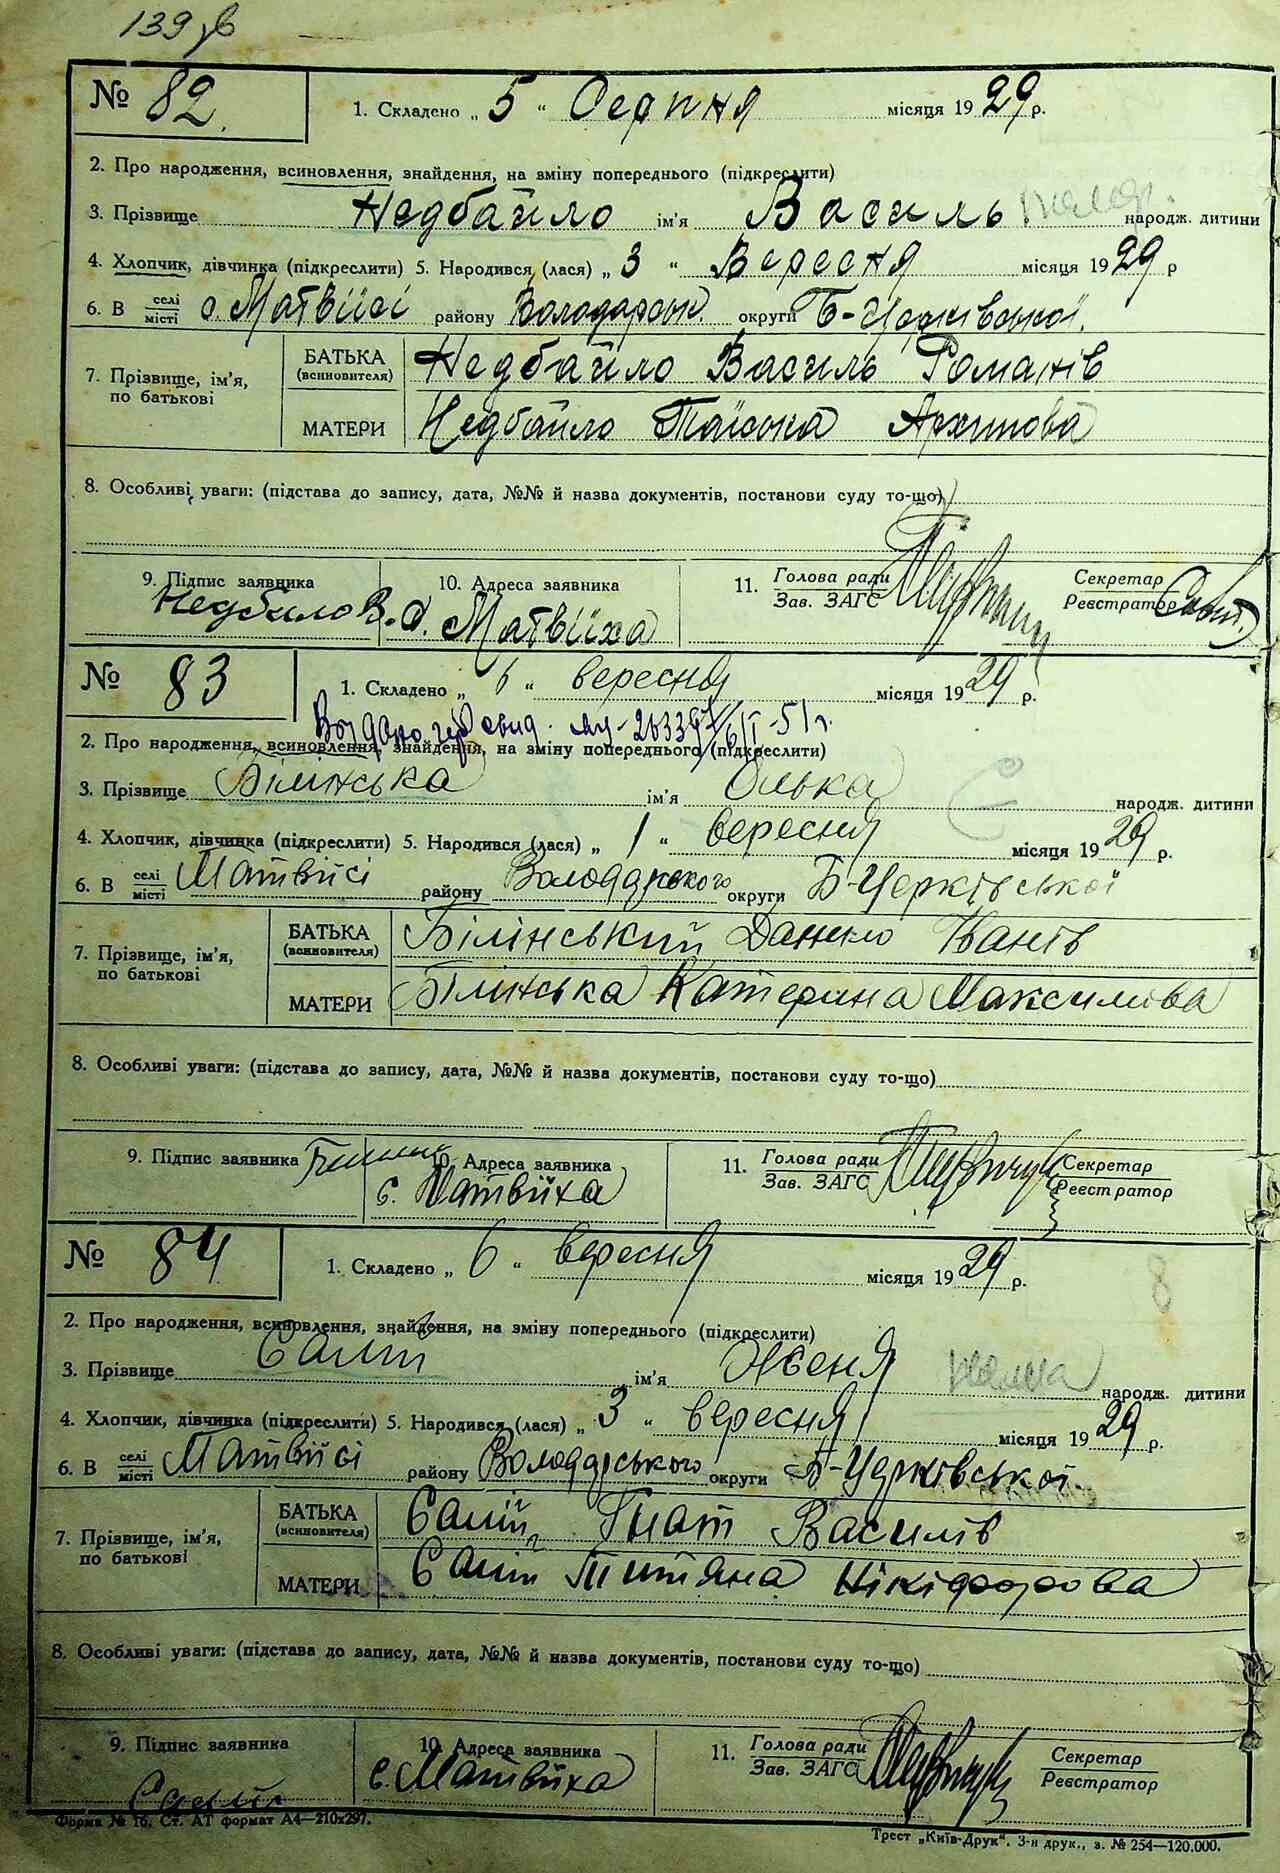 139 зв
№ 82. 1. Складено „ 5 “ Серпня місяця 1929 р.
2. Про народження, всиновлення, знайдення, на зміну попереднього (підкреслити)
3. Прізвище Недбайло ім'я Василь народж. дитини
4. Хлопчик, дівчинка (підкреслити) 5. Народився (лася) „ 3 “ Вересня місяця 1929 р
6. В селі/місті с. Матвіїсі району Володарськ. округи Б-Церківської.
7. Прізвище, ім'я, по батькові
БАТЬКА (всиновителя) Недбайло Василь Романів
МАТЕРИ Недбайло Таїська Архипова
8. Особливі уваги: (підстава до запису, дата, №№ й назва документів, постанови суду то-що)
9. Підпис заявника 10. Адреса заявника 11. Голова ради Секретар
Зав. ЗАГС Реєстратор
Недбило В. с. Матвіїха
№ 83 1. Складено „ 6 “ вересня місяця 1929 р.
2. Про народження, всиновлення, знайдення, на зміну попереднього (підкреслити)
3. Прізвище Білінська ім'я Олька народж. дитини
4. Хлопчик, дівчинка (підкреслити) 5. Народився (лася) „ 1 “ вересня місяця 1929 р.
6. В селі/місті Матвіїсі району Володарського округи Б-Церківської
7. Прізвище, ім'я, по батькові
БАТЬКА (всиновителя) Білінський Данило Іванів
МАТЕРИ Білінська Катерина Максимова
8. Особливі уваги: (підстава до запису, дата, №№ й назва документів, постанови суду то-що)
9. Підпис заявника 10. Адреса заявника 11. Голова ради Секретар
Зав. ЗАГС Реєстратор
с. Матвіїха
№ 84 1. Складено „ 6 “ вересня місяця 1929 р.
2. Про народження, всиновлення, знайдення, на зміну попереднього (підкреслити)
3. Прізвище Салій ім'я Женя народж. дитини
4. Хлопчик, дівчинка (підкреслити) 5. Народився (лася) „ 3 “ вересня місяця 1929 р.
6. В селі/місті Матвіїсі району Володарського округи Б-Церківської.
7. Прізвище, ім'я, по батькові
БАТЬКА (всиновителя) Салій Гнат Василів
МАТЕРИ Салій Титяна Нікіфорова
8. Особливі уваги: (підстава до запису, дата, №№ й назва документів, постанови суду то-що)
9. Підпис заявника 10. Адреса заявника 11. Голова ради Секретар
Зав. ЗАГС Реєстратор
Салій с. Матвіїха
Форма № 16. Ст. АТ формат А4—210х297.
Трест „Київ-Друк“. 3-я друк., з. № 254—120.000.